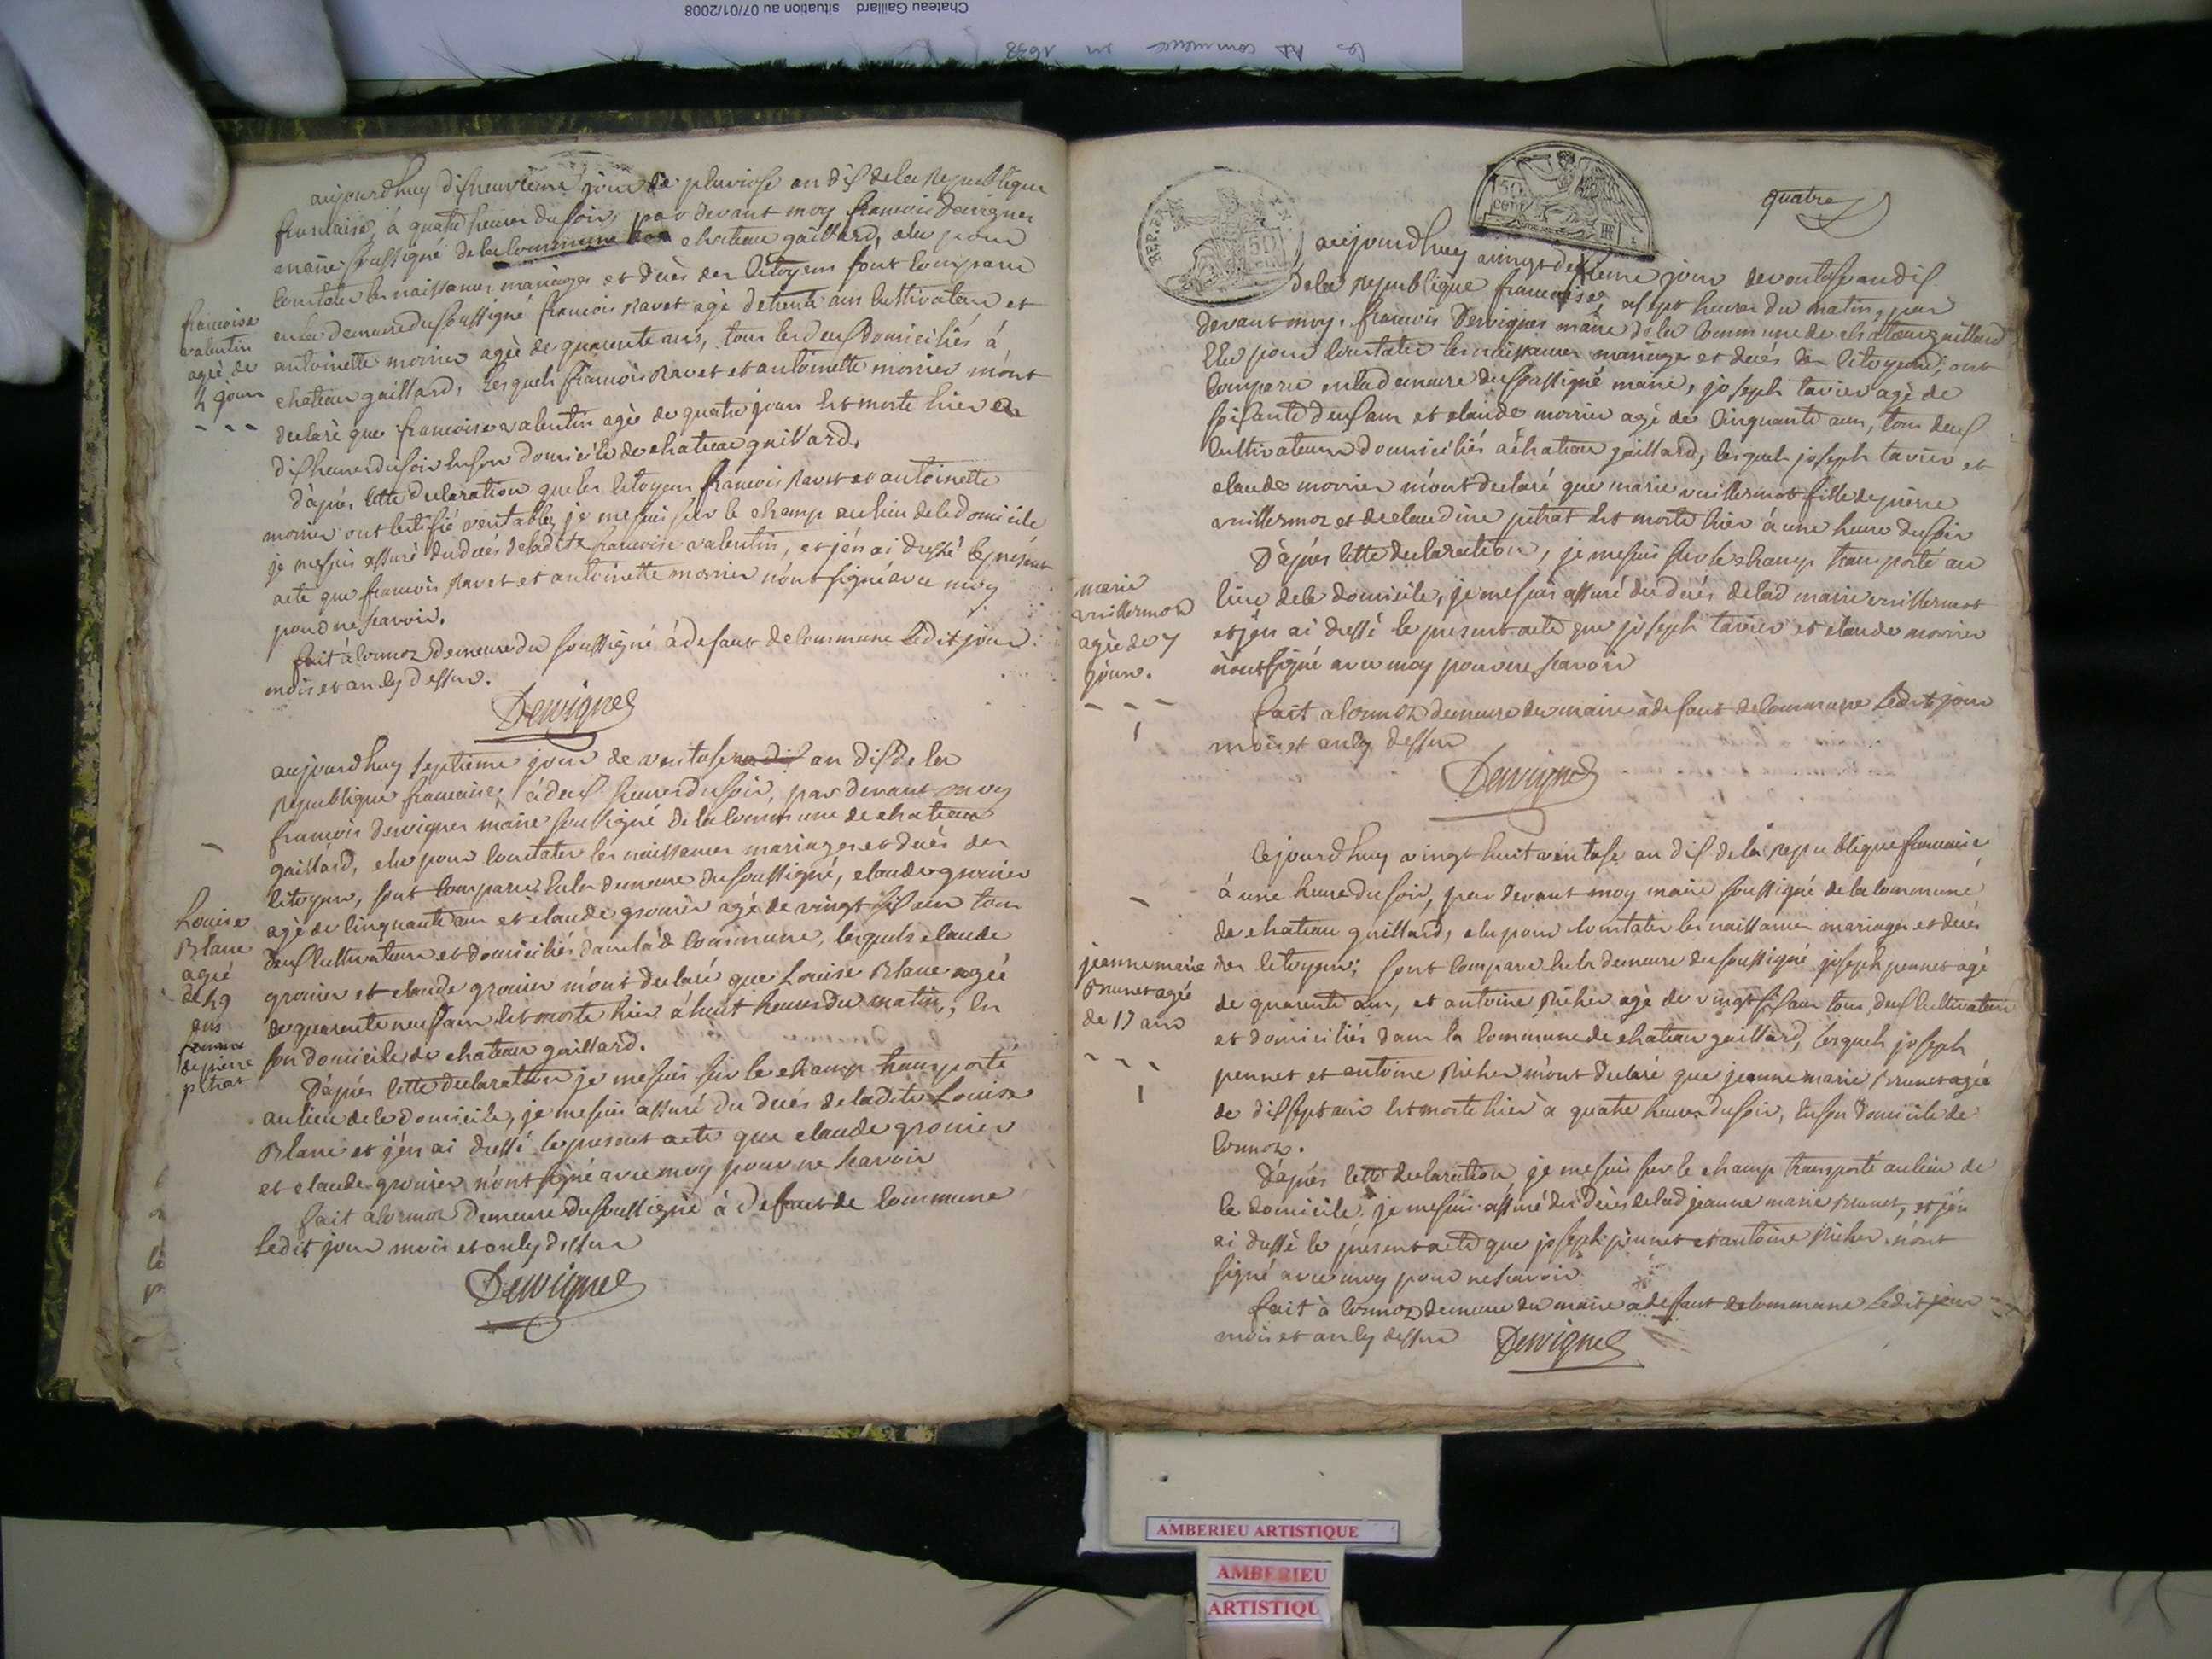 Chateau Gaillard situation au 07/01/2008
les commence en 1638
aujourdhuy disneuvieme jour de pluviose an dis de la Republique
francaise, à quatre heures du soir, par devant moy francois Dervigner
maire soussigné de la commune chateau gaillard, elu pour
constater les naissances mariages et décès des Citoyens sont comparu
en la demeure du soussigné francois Ravet agé de trente ans cultivateur et
antoinette morrier agèe de quarente ans, tous les deux Domiciliés à
chateau gaillard, lesquels francois Ravet et antoinette morrier m'ont
declaré que francoise valentin agèe de quatre jours est morte hier a
dis heures du soir en son domicile de chateau gaillard.
D'après cette declaration que les citoyens francois Ravet et antoinette
morrier ont certifié veritable, je me suis sur le champ au lieu de le domicile
je me suis assuré du décés de ladite francoise valentin, et j'en ai dressé le présent
acte que francois Ravet et antoinette morrier n'ont signé avec moy
pour ne scavoir.
fait à Cormoz demeure du soussigné à defaut de commune ledit jour
mois et an cy dessus.
Dervigner
francoise
valentin
agèe de
4 jours
aujourdhuy septieme jour de ventose an dis de la
Republique francaise, à deux heures du soir, par devant moy
francois Dervigner maire soussigné de la commune de chateau
gaillard, elu pour constater les naissances mariages et décès des
citoyens, sont comparu en la demeure du soussigné, claude gronier
agé de cinquante ans et claude gronier agé de vingt six ans tous
deux cultivateurs et domiciliés dans la d commune, lesquels claude
gronier et claude gronier m'ont declaré que Louise Blanc agée
de quarente neuf ans est morte hier à huit heures du matin, en
son domicile de chateau gaillard.
D'après cette declaration je me suis sur le champ transporté
au lieu de le domicile, je me suis assuré du décés de ladite Louise
Blanc et j'en ai dressé le present acte que claude gronier
et claude gronier n'ont signé avec moy pour ne scavoir
fait a Cormoz demeure du soussigné à defaut de commune
ledit jour mois et an cy dessus
Dervigner
Louise
Blanc
agée
de 49
ans
femme
de pierre
petrat
quatre
REP. FRA
50
cent
aujourdhuy vingt deuxieme jour de ventose an dis
de la republique francaise, a sept heures du matin, par
devant moy. francois Dervigner maire de la commune de chateau gaillard
Elu pour constater les naissances mariages et decés des citoyens, ont
comparu en la demeure du soussigné maire, joseph tavier agé de
soixante deux ans et claude morrier agé de Cinquante ans, tous deux
cultivateurs domiciliés à chateau gaillard, lesquels joseph tavier et
claude morrier m'ont declaré que marie vuillermoz fille de pierre
vuillermoz et de claudine petrat est morte hier à une heure du soir
D'après cette declaration, je me suis sur le champ transporté au
lieu de le domicile, je me suis assuré du décés de lad marie vuillermoz
et j'en ai dressé le present acte que joseph tavier et claude morrier
n'ont signé avec moy pour ne scavoir
fait a Cormoz demeure du maire à defaut de commune ledit jour
mois et an cy dessus
Dervigner
marie
vuillermoz
agèe de 7
jours.
Cejourdhuy vingt huit ventose an dis de la republique francaise
à une heure du soir, par devant moy maire soussigné de la commune
de chateau gaillard, elu pour constater les naissances mariages et décés
des citoyens; sont comparu en la demeure du soussigné joseph pennet agé
de quarente ans, et antoine Richer agé de vingt six ans tous deux cultivateurs
et domiciliés dans la commune de chateau gaillard, lesquels joseph
pennet et antoine Richer m'ont declaré que jeanne marie Brunet agée
de dis sept ans est morte hier à quatre heures du soir, en son domicile de
Cormoz.
D'après cette declaration, je me suis sur le champ transporté au lieu de
le domicile. je me suis assuré du décès de lad jeanne marie Brunet, et j'en
ai dressé le présent acte que joseph pennet et antoine Richer n'ont
signé avec moy pour ne scavoir
fait à Cormoz demeure du maire a defaut de commune ledit jour
mois et an cy dessus Dervigner
jeanne marie
Brunet agée
de 17 ans
AMBERIEU ARTISTIQUE
AMBERIEU
ARTISTIQU